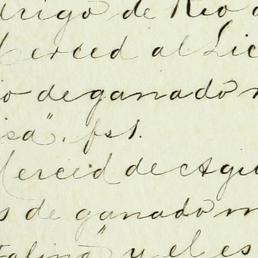 drigo de Rio d
Merced al Lic
o de ganado m
isa", fs1.
Merced de Agu
s de ganado m
talina" y el es